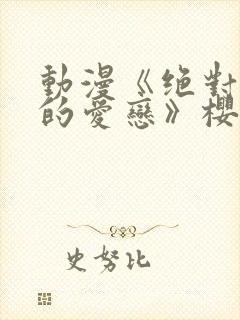 動漫《絕對
的愛戀》櫻
史努比